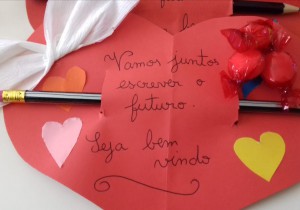 Vamos juntos
escrever o
futuro.
Seja bem
vindo